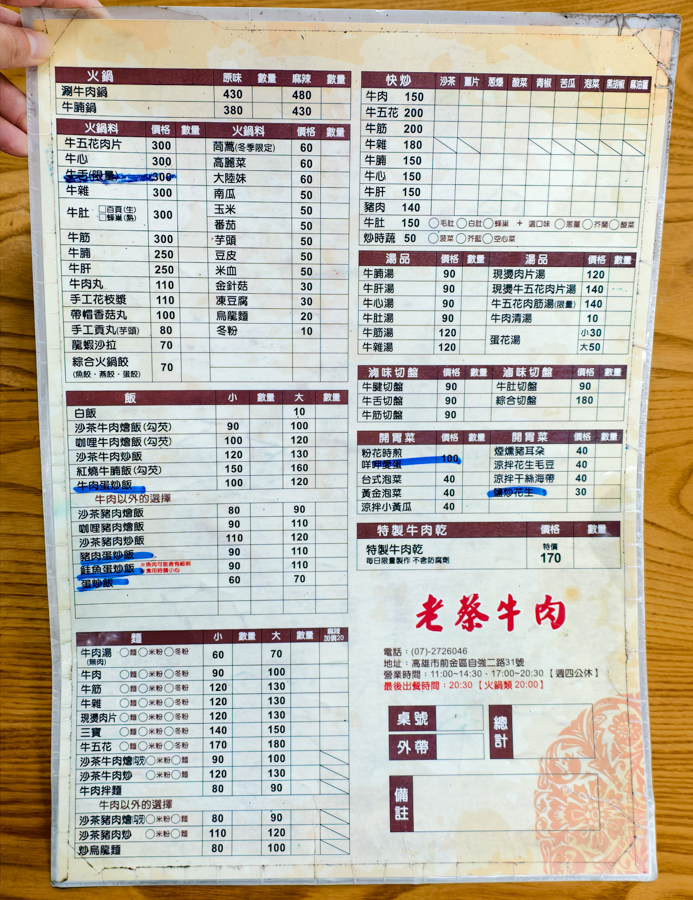 火鍋 原味 數量 麻辣 數量
涮牛肉鍋 430 480
牛腩鍋 380 430
火鍋料 價格 數量 火鍋料 價格 數量
牛五花肉片 300 茼蒿(冬季限定) 60
牛心 300 高麗菜 60
牛舌(限量) 300 大陸妹 60
牛雜 300 南瓜 50
牛肚 □百頁(生) □蜂巢(熟) 300 玉米 50
番茄 50
牛筋 300 芋頭 50
牛腩 250 豆皮 50
牛肝 250 米血 50
牛肉丸 110 金針菇 30
手工花枝漿 110 凍豆腐 30
帶帽香菇丸 100 烏龍麵 20
手工貢丸(芋頭) 80 冬粉 10
龍蝦沙拉 70
綜合火鍋餃 70
(魚餃、燕餃、蛋餃)
飯 小 數量 大 數量
白飯 10
沙茶牛肉燴飯(勾芡) 90 100
咖哩牛肉燴飯(勾芡) 100 120
沙茶牛肉炒飯 120 130
紅燒牛腩飯(勾芡) 150 160
牛肉蛋炒飯 100 120
牛肉以外的選擇
沙茶豬肉燴飯 80 90
咖哩豬肉燴飯 90 110
沙茶豬肉炒飯 110 120
豬肉蛋炒飯 90 110
鮭魚蛋炒飯 90 110
蛋炒飯 60 70
麵 小 數量 大 數量 麻辣加價20
牛肉湯 ○麵○米粉○冬粉 60 70
(無肉)
牛肉 ○麵○米粉○冬粉 90 100
牛筋 ○麵○米粉○冬粉 120 130
牛雜 ○麵○米粉○冬粉 120 130
現燙肉片 ○麵○米粉○冬粉 120 130
三寶 ○麵○米粉○冬粉 140 150
牛五花 ○麵○米粉○冬粉 170 180
沙茶牛肉燴 ○米粉○麵 90 100
沙茶牛肉炒 ○米粉○麵 120 130
牛肉拌麵 80 90
牛肉以外的選擇
沙茶豬肉燴 ○米粉○麵 80 90
沙茶豬肉炒 ○米粉○麵 110 120
炒烏龍麵 80 100
快炒 沙茶 薑片 蔥爆 酸菜 青椒 苦瓜 泡菜 黑胡椒 麻油薑
牛肉 150
牛五花 200
牛筋 200
牛雜 180
牛腩 150
牛心 150
牛肝 150
豬肉 140
牛肚 150 ○毛肚○白肚○蜂巢 + 選口味 ○蔥薑○芥蘭○酸菜
炒時蔬 50 ○菠菜○芥藍○空心菜
湯品 價格 數量 湯品 價格 數量
牛腩湯 90 現燙肉片湯 120
牛肝湯 90 現燙牛五花肉片湯 140
牛心湯 90 牛五花肉筋湯(限量) 140
牛肚湯 90 牛肉清湯 10
牛筋湯 120 蛋花湯 小30
牛雜湯 120 大50
滷味切盤 價格 數量 滷味切盤 價格 數量
牛腱切盤 90 牛肚切盤 90
牛舌切盤 90 綜合切盤 180
牛筋切盤 90
開胃菜 價格 數量 開胃菜 價格 數量
粉花時煎 100 煙燻豬耳朵 40
咩呷愛蛋 涼拌花生毛豆 40
台式泡菜 40 涼拌干絲海帶 40
黃金泡菜 40 鹽炒花生 30
涼拌小黃瓜 40
特製牛肉乾 價格 數量
特製牛肉乾 特價
每日限量製作 不含防腐劑 170
老蔡牛肉
電話：(07)-2726046
地址：高雄市前金區自強二路31號
營業時間：11:00~14:30、17:00~20:30【週四公休】
最後出餐時間：20:30【火鍋類 20:00】
桌號 總計
外帶
備註